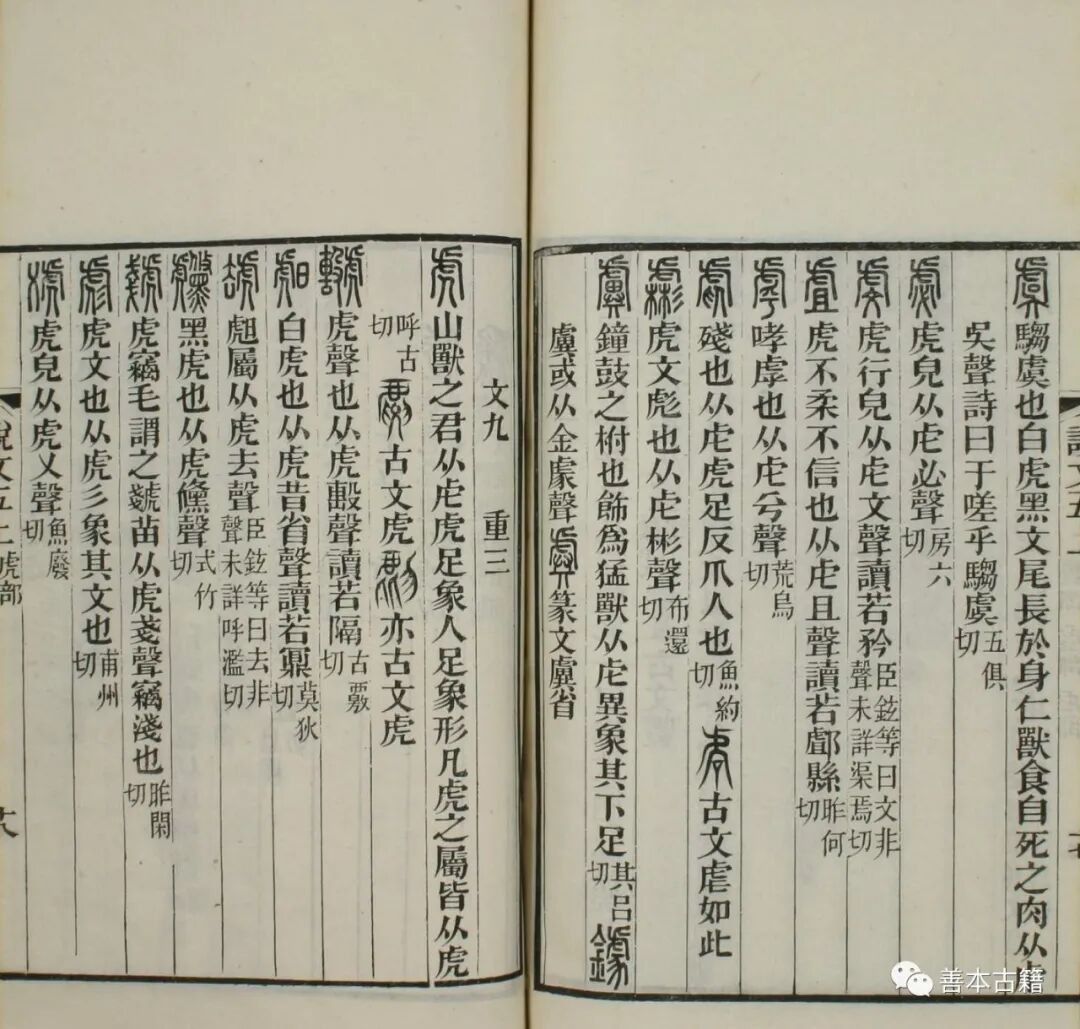 虞騶虞也白虎黑文尾長於身仁獸食自死之肉从虍
吳聲詩曰于嗟乎騶虞五俱切
虙虎皃从虍必聲房六切
虔虎行皃从虍文聲讀若矜臣鉉等曰文非聲未詳渠焉切
虘虎不柔不信也从虍且聲讀若䣜縣昨何切
虖哮虖也从虍兮聲荒烏切
虐殘也从虍虎足反爪人也魚約切古文虐如此
虨虎文彪也从虍彬聲布還切
虡鐘鼓之柎也飾爲猛獸从虍異象其下足其呂切鐻
虡或从金豦聲虡篆文虡省
文九 重三
虎山獸之君从虍虎足象人足象形凡虎之屬皆从虎
呼古切古文虎亦古文虎
虎聲也从虎㱿聲讀若隔古覈切
白虎也从虎昔省聲讀若鼏莫狄切
屬从虎去聲臣鉉等曰去非聲未詳呼濫切
虪黑虎也从虎儵聲式竹切
虦虎竊毛謂之虦苗从虎戔聲竊淺也昨閑切
彪虎文也从虎彡象其文也甫州切
虎皃从虎乂聲魚廢切
說文五上虎部
十八
善本古籍